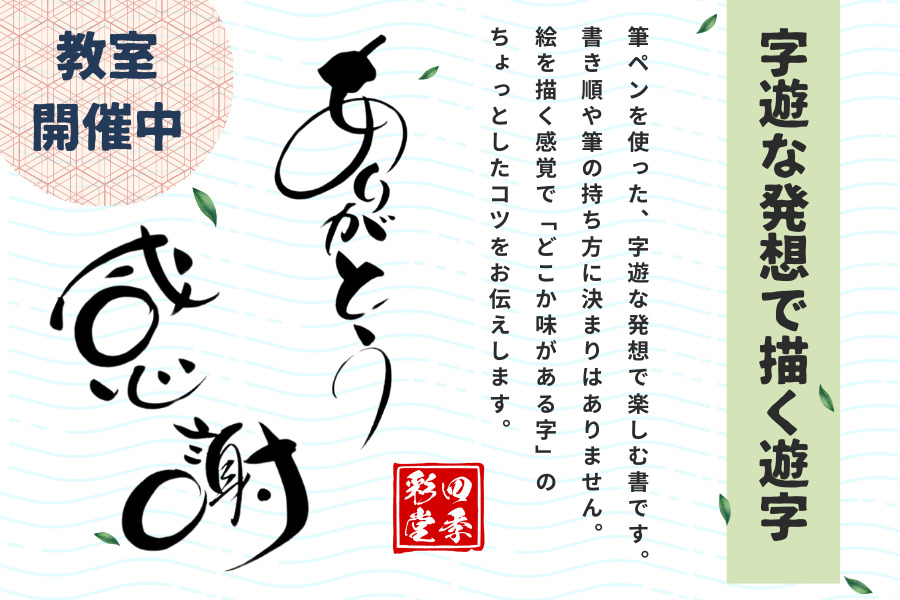 字遊な発想で描く遊字
筆ペンを使った、字遊な発想で楽しむ書です。
書き順や筆の持ち方に決まりはありません。
絵を描く感覚で「どこか味がある字」の
ちょっとしたコツをお伝えします。
ありがとう
感謝
教室
開催中
四季
彩堂